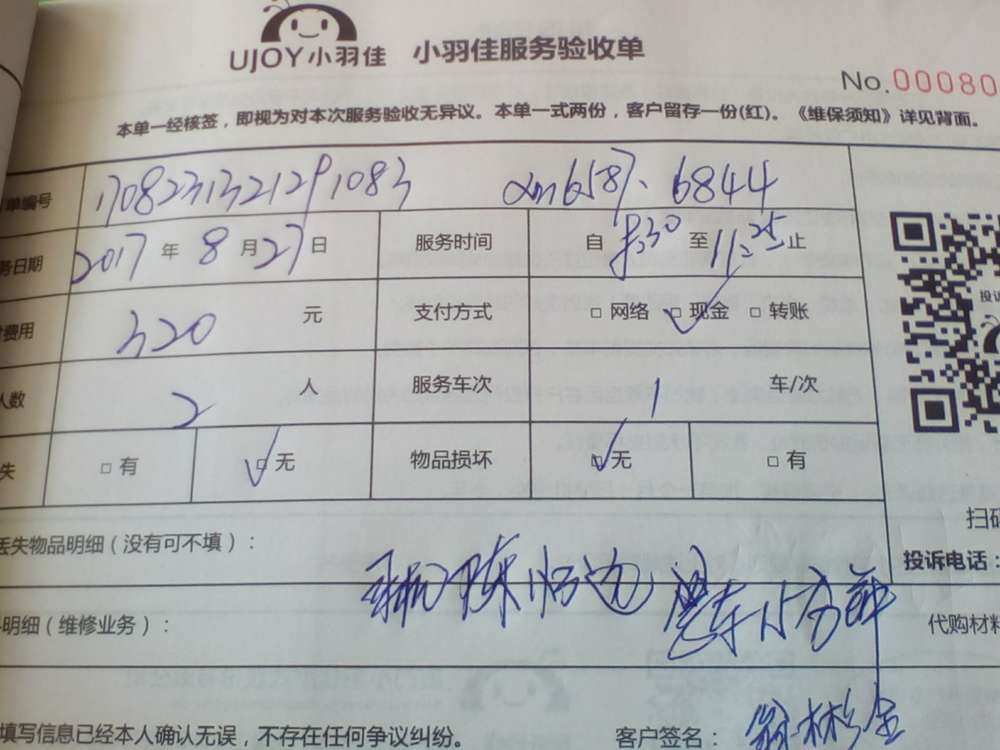 UJOY小羽佳 小羽佳服务验收单
No.00080
本单一经核签，即视为对本次服务验收无异议。本单一式两份，客户留存一份(红)。《维保须知》详见背面。
单编号 1708231321291083 6844
务日期 2017 年 8 月 27 日 服务时间 自 8:30 至 11:25 止
费用 320 元 支付方式 □ 网络 □ 现金 □ 转账
人数 2 人 服务车次 1 车/次
失 □ 有 □ 无 物品损坏 □ 无 □ 有
丢失物品明细（没有可不填）：
扫码
投诉电话：
明细（维修业务）： 代购材料
填写信息已经本人确认无误，不存在任何争议纠纷。 客户签名：